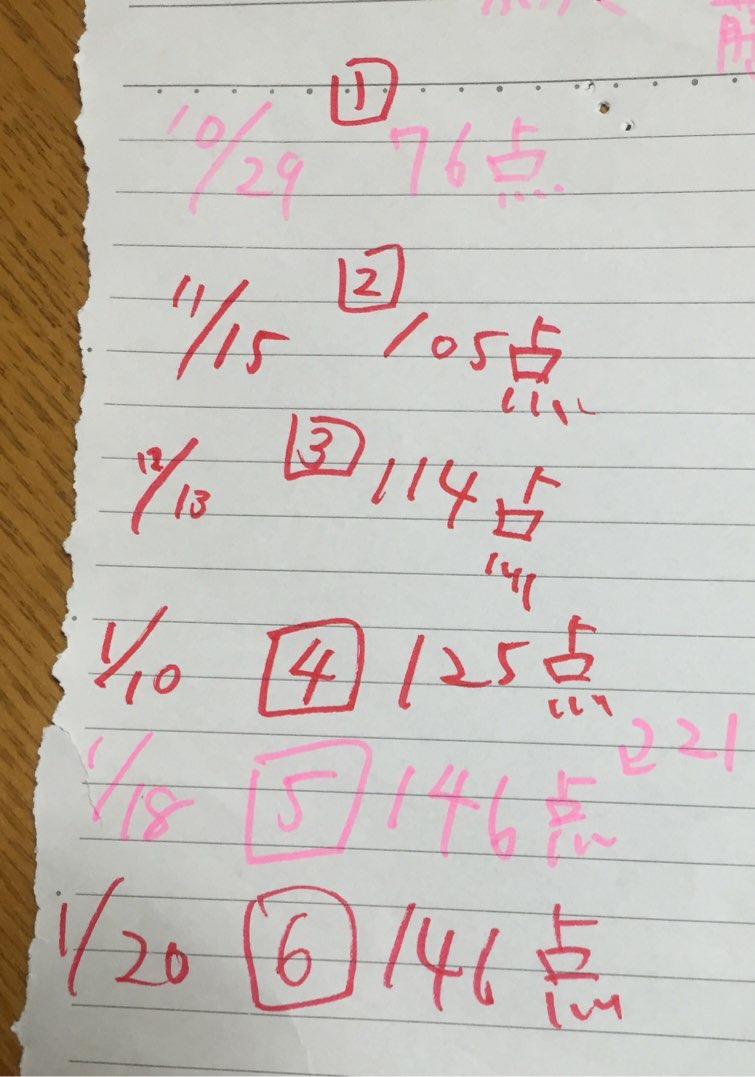 1
10/29 76点
2
11/15 105点
3
12/13 114点
1/10 4 125点
221
1/18 5 146点
1/20 6 146点